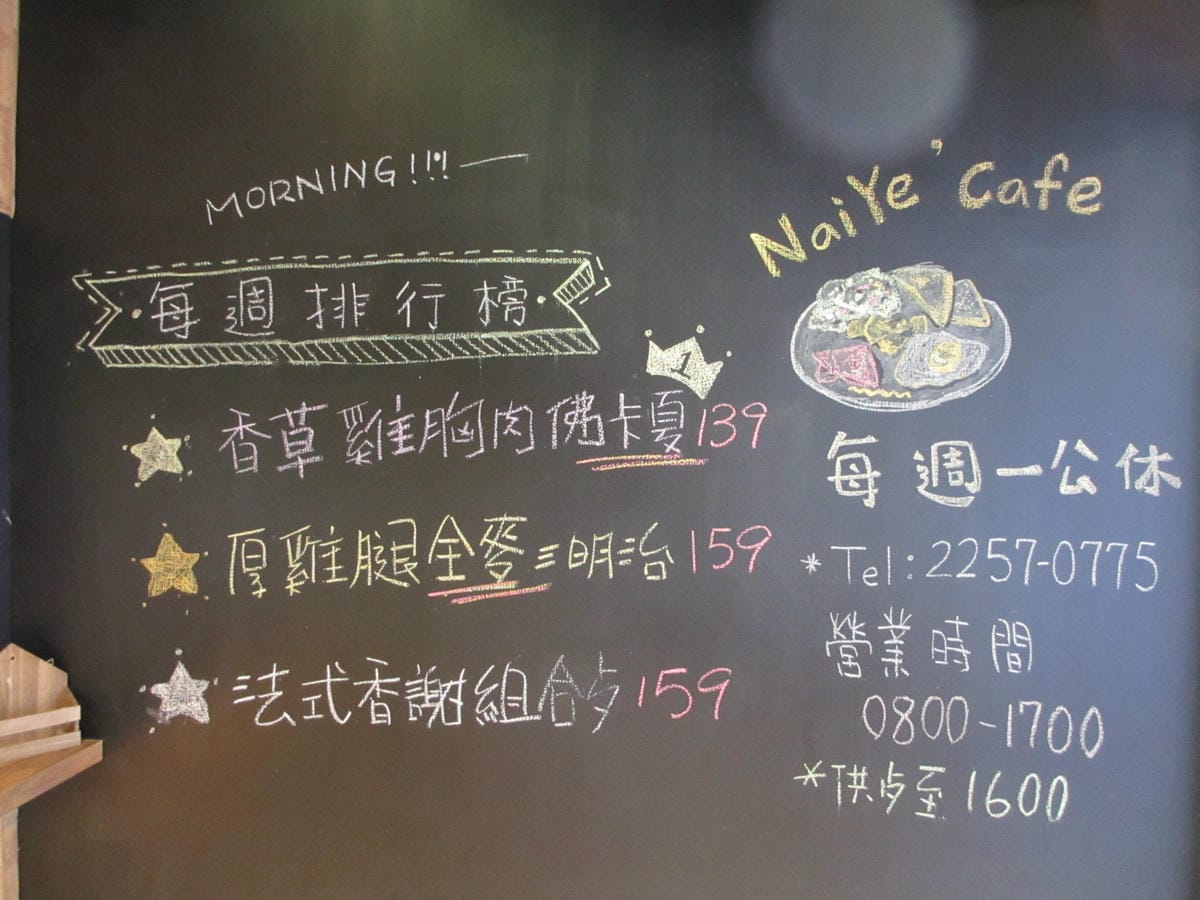 MORNING!!!
每週排行榜
1
香草雞胸肉佛卡夏139
厚雞腿全麥三明治159
法式香謝組合歺159
NaiYe' Cafe
每週一公休
*Tel:2257-0775
營業時間
0800-1700
*供歺至1600